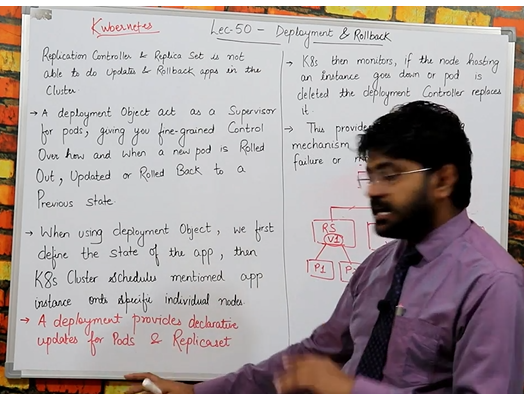 Kubernetes
Lec-50 - Deployment & Rollback
Replication Controller & Replica Set is not
able to do Updates & Rollback apps in the
Cluster
→ A deployment Object act as a Supervisor
for pods, giving you fine-grained Control
Over how and when a new pod is Rolled
Out, Updated or Rolled Back to a
Previous state.
→ When using deployment Object, we first
define the state of the app, then
K8s Cluster schedules mentioned app
instance onto specific individual nodes.
→ A deployment provides declarative
updates for Pods & Replicaset
→ K8s then monitors, if the node hosting
an instance goes down or pod is
deleted the deployment Controller replaces
it.
→ This provides
mechanism
failure or
RS
V1
P1